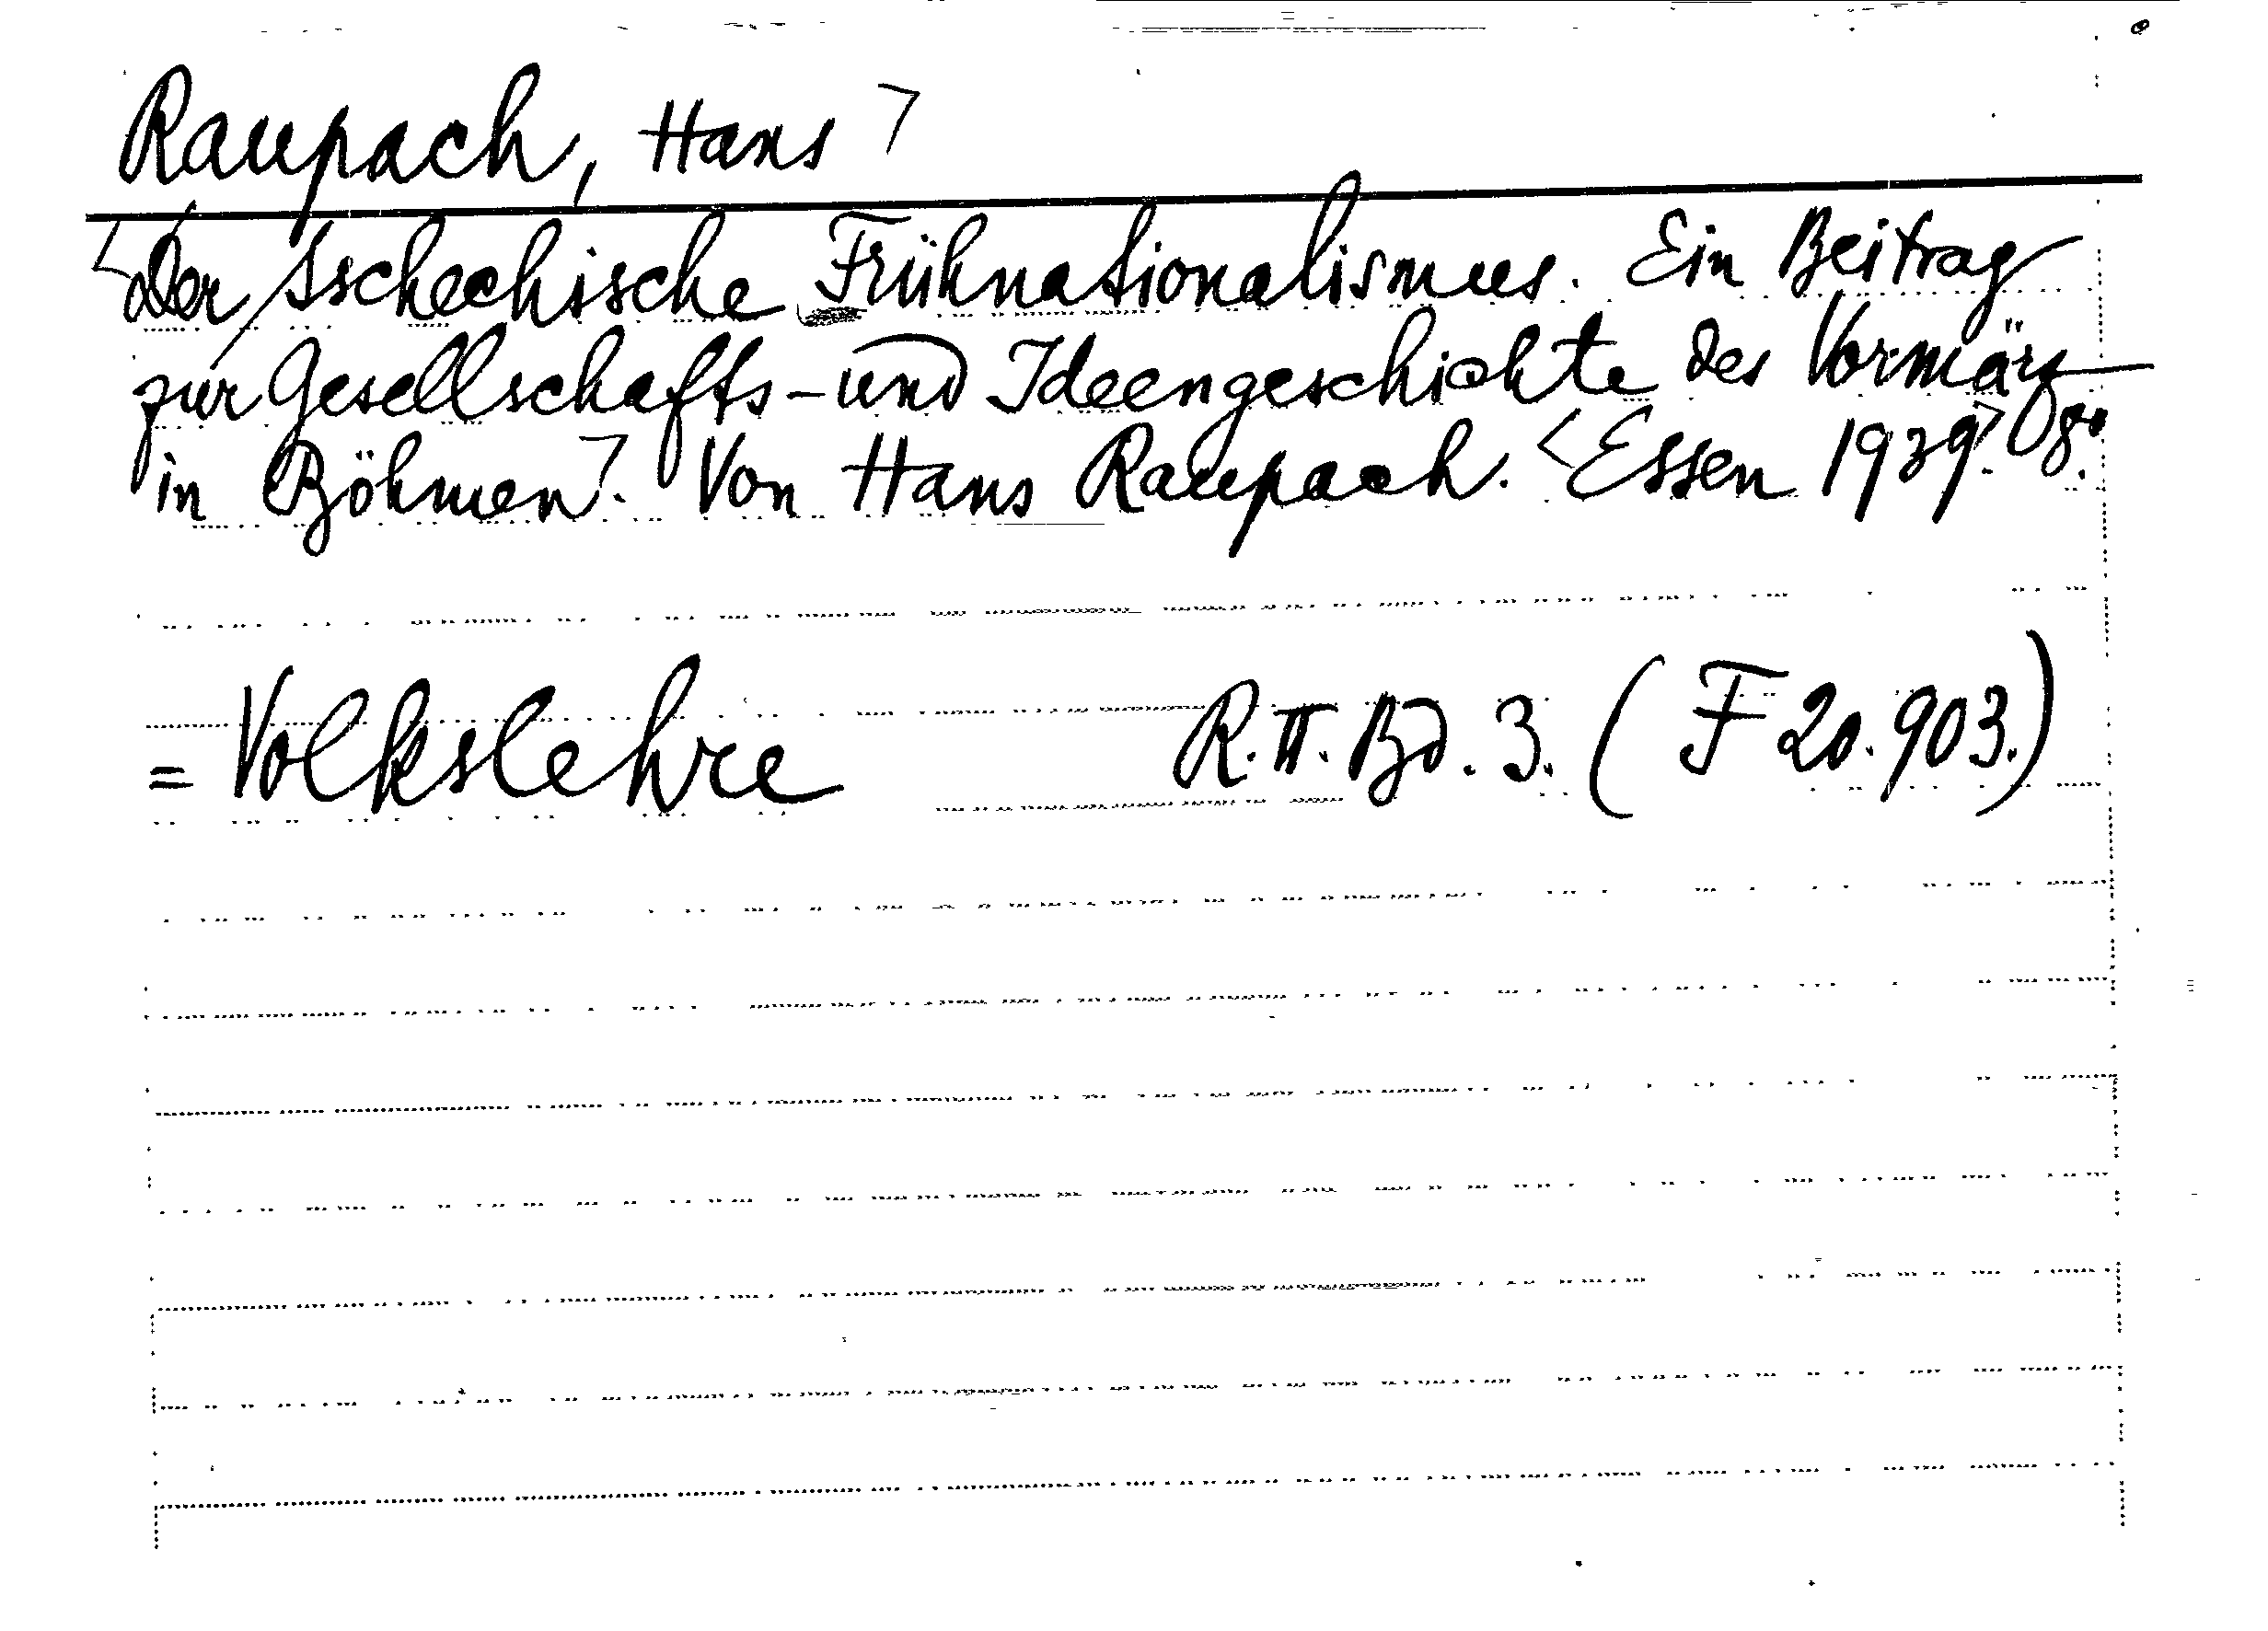 Raupach, Hans ⌝
<Der tschechische Frühnationalismus. Ein Beitrag
zur Gesellschafts- und Ideengeschichte des Vormärz
in Böhmen⌝. Von Hans Raupach. <Essen 1939⌝. 8°.
= Volkslehre R. II. Bd. 3. (F 20.903.)